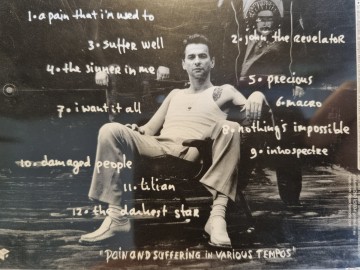 1. a pain that i'm used to
2. john the revelator
3. suffer well
4. the sinner in me
5. precious
6. macro
7. i want it all
8. nothing's impossible
9. introspectre
10. damaged people
11. lilian
12. the darkest star
"PAIN AND SUFFERING IN VARIOUS TEMPOS"